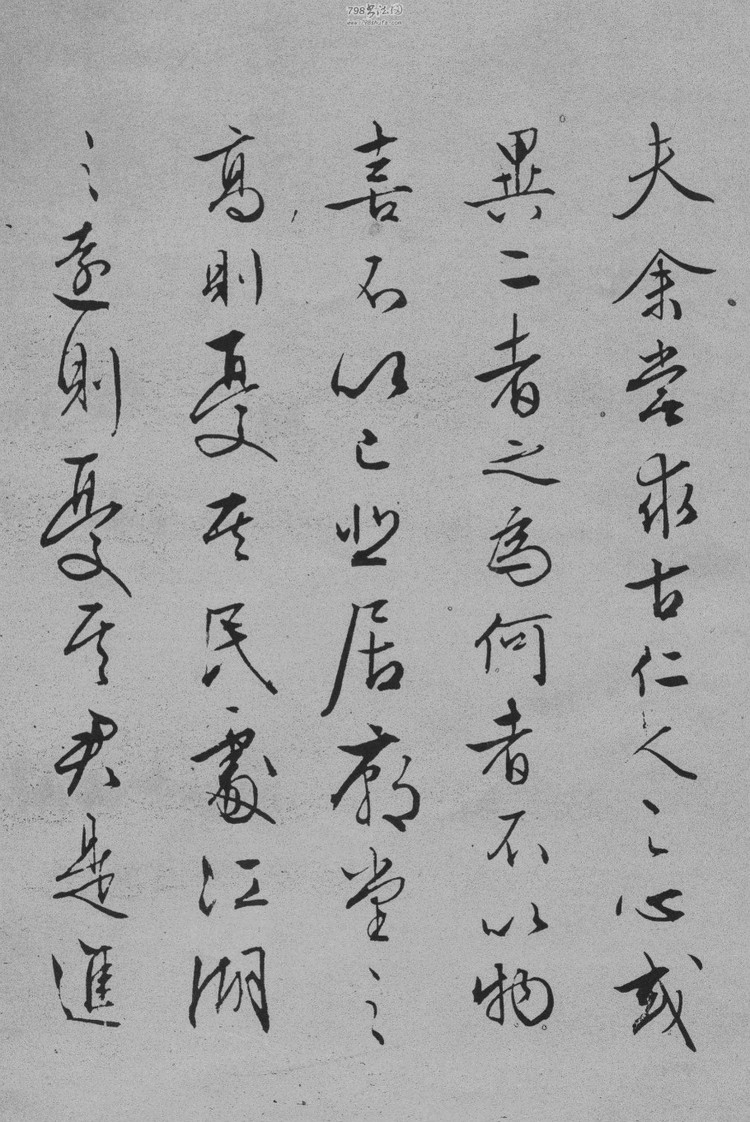 798书法网
www.798shufa.com
夫余嘗求古仁人之心或
異二者之為何者不以物
喜不以己悲居廟堂之
高則憂其民處江湖
之遠則憂其君是進